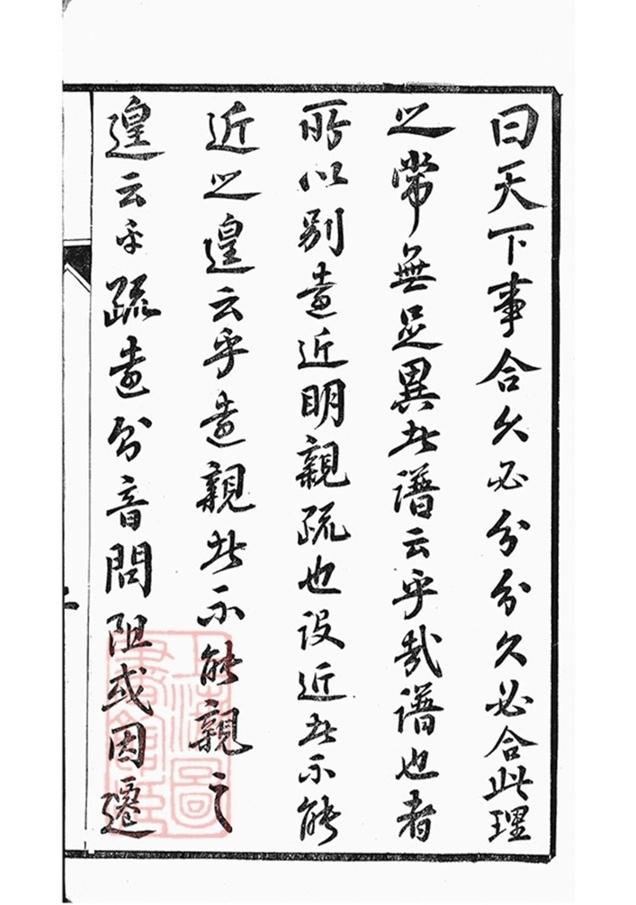 曰天下事合久必分分久必合此理
之常無足異者譜云乎哉譜也者
所以別遠近明親疏也設近者不能
近之遑云乎遠親者不能親之
遑云乎疏遠分音問阻或因遷
上海圖
書館藏